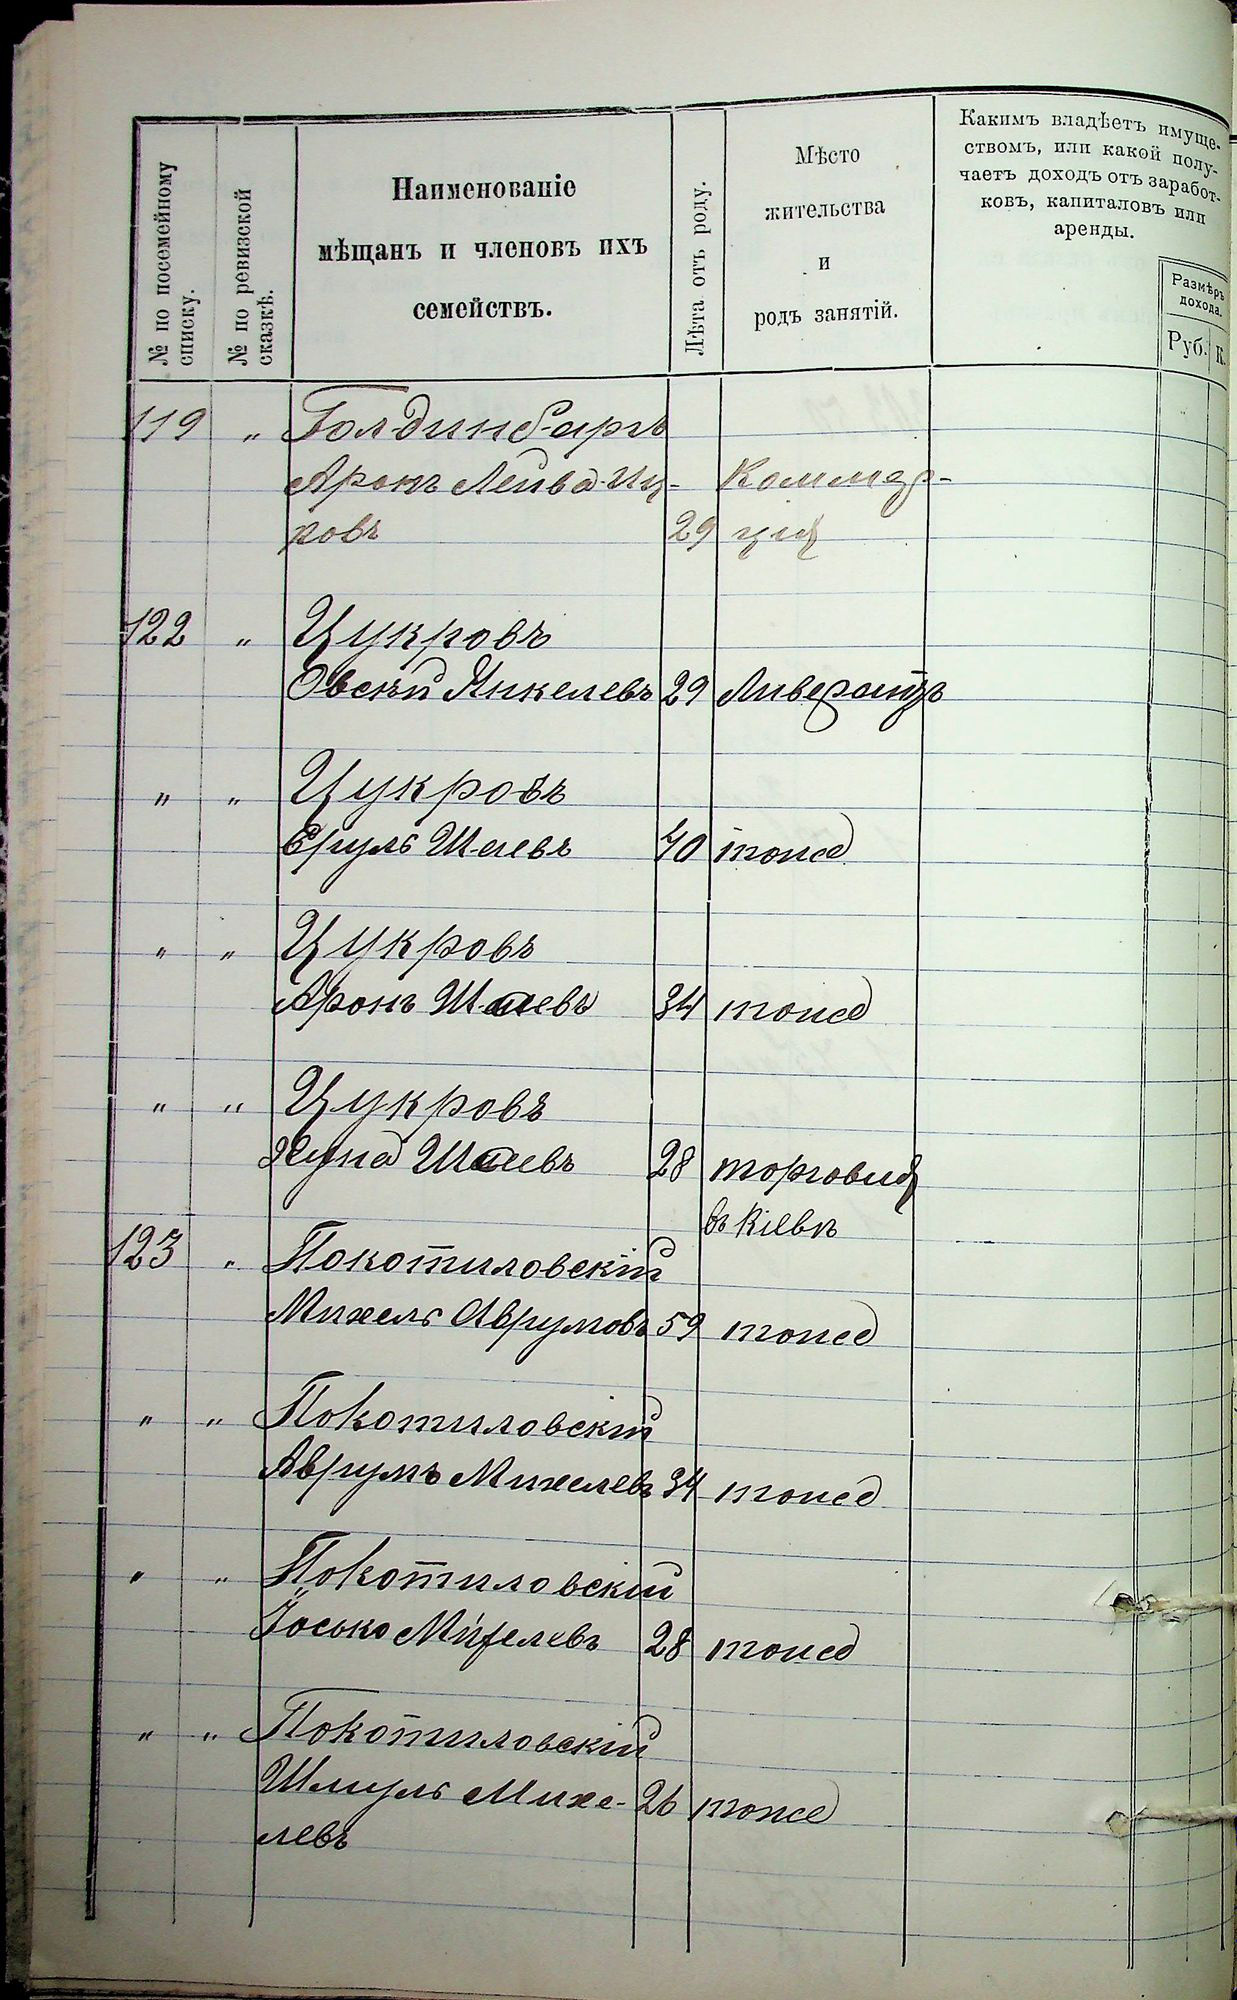 № по посемейному списку.
№ по ревизской сказкѣ.
Наименованіе
мѣщанъ и членовъ ихъ
семействъ.
Лѣта отъ роду.
Мѣсто
жительства
и
родъ занятій.
Какимъ владѣетъ имуще-
ствомъ, или какой полу-
чаетъ доходъ отъ заработ-
ковъ, капиталовъ или
аренды.
Размѣръ
дохода.
Руб. К.
119 " Голдинбергъ
Аронъ Лейба-Иц- Коммер-
ковъ 29 ція
122 " Цукровъ
Овсѣй Янкелевъ 29
" " Цукровъ
Сруль Шаевъ 40 тоже
" " Цукровъ
Аронъ Шаевъ 34 тоже
" " Цукровъ
Шаевъ 28 торговля
въ Кіевѣ
123 " Покотиловскій
Михель Аврумовъ 59 тоже
" " Покотиловскій
Аврумъ Михелевъ 34 тоже
" " Покотиловскій
Іосько Михелевъ 28 тоже
" " Покотиловскій
Шмуль Михе- 26 тоже
левъ